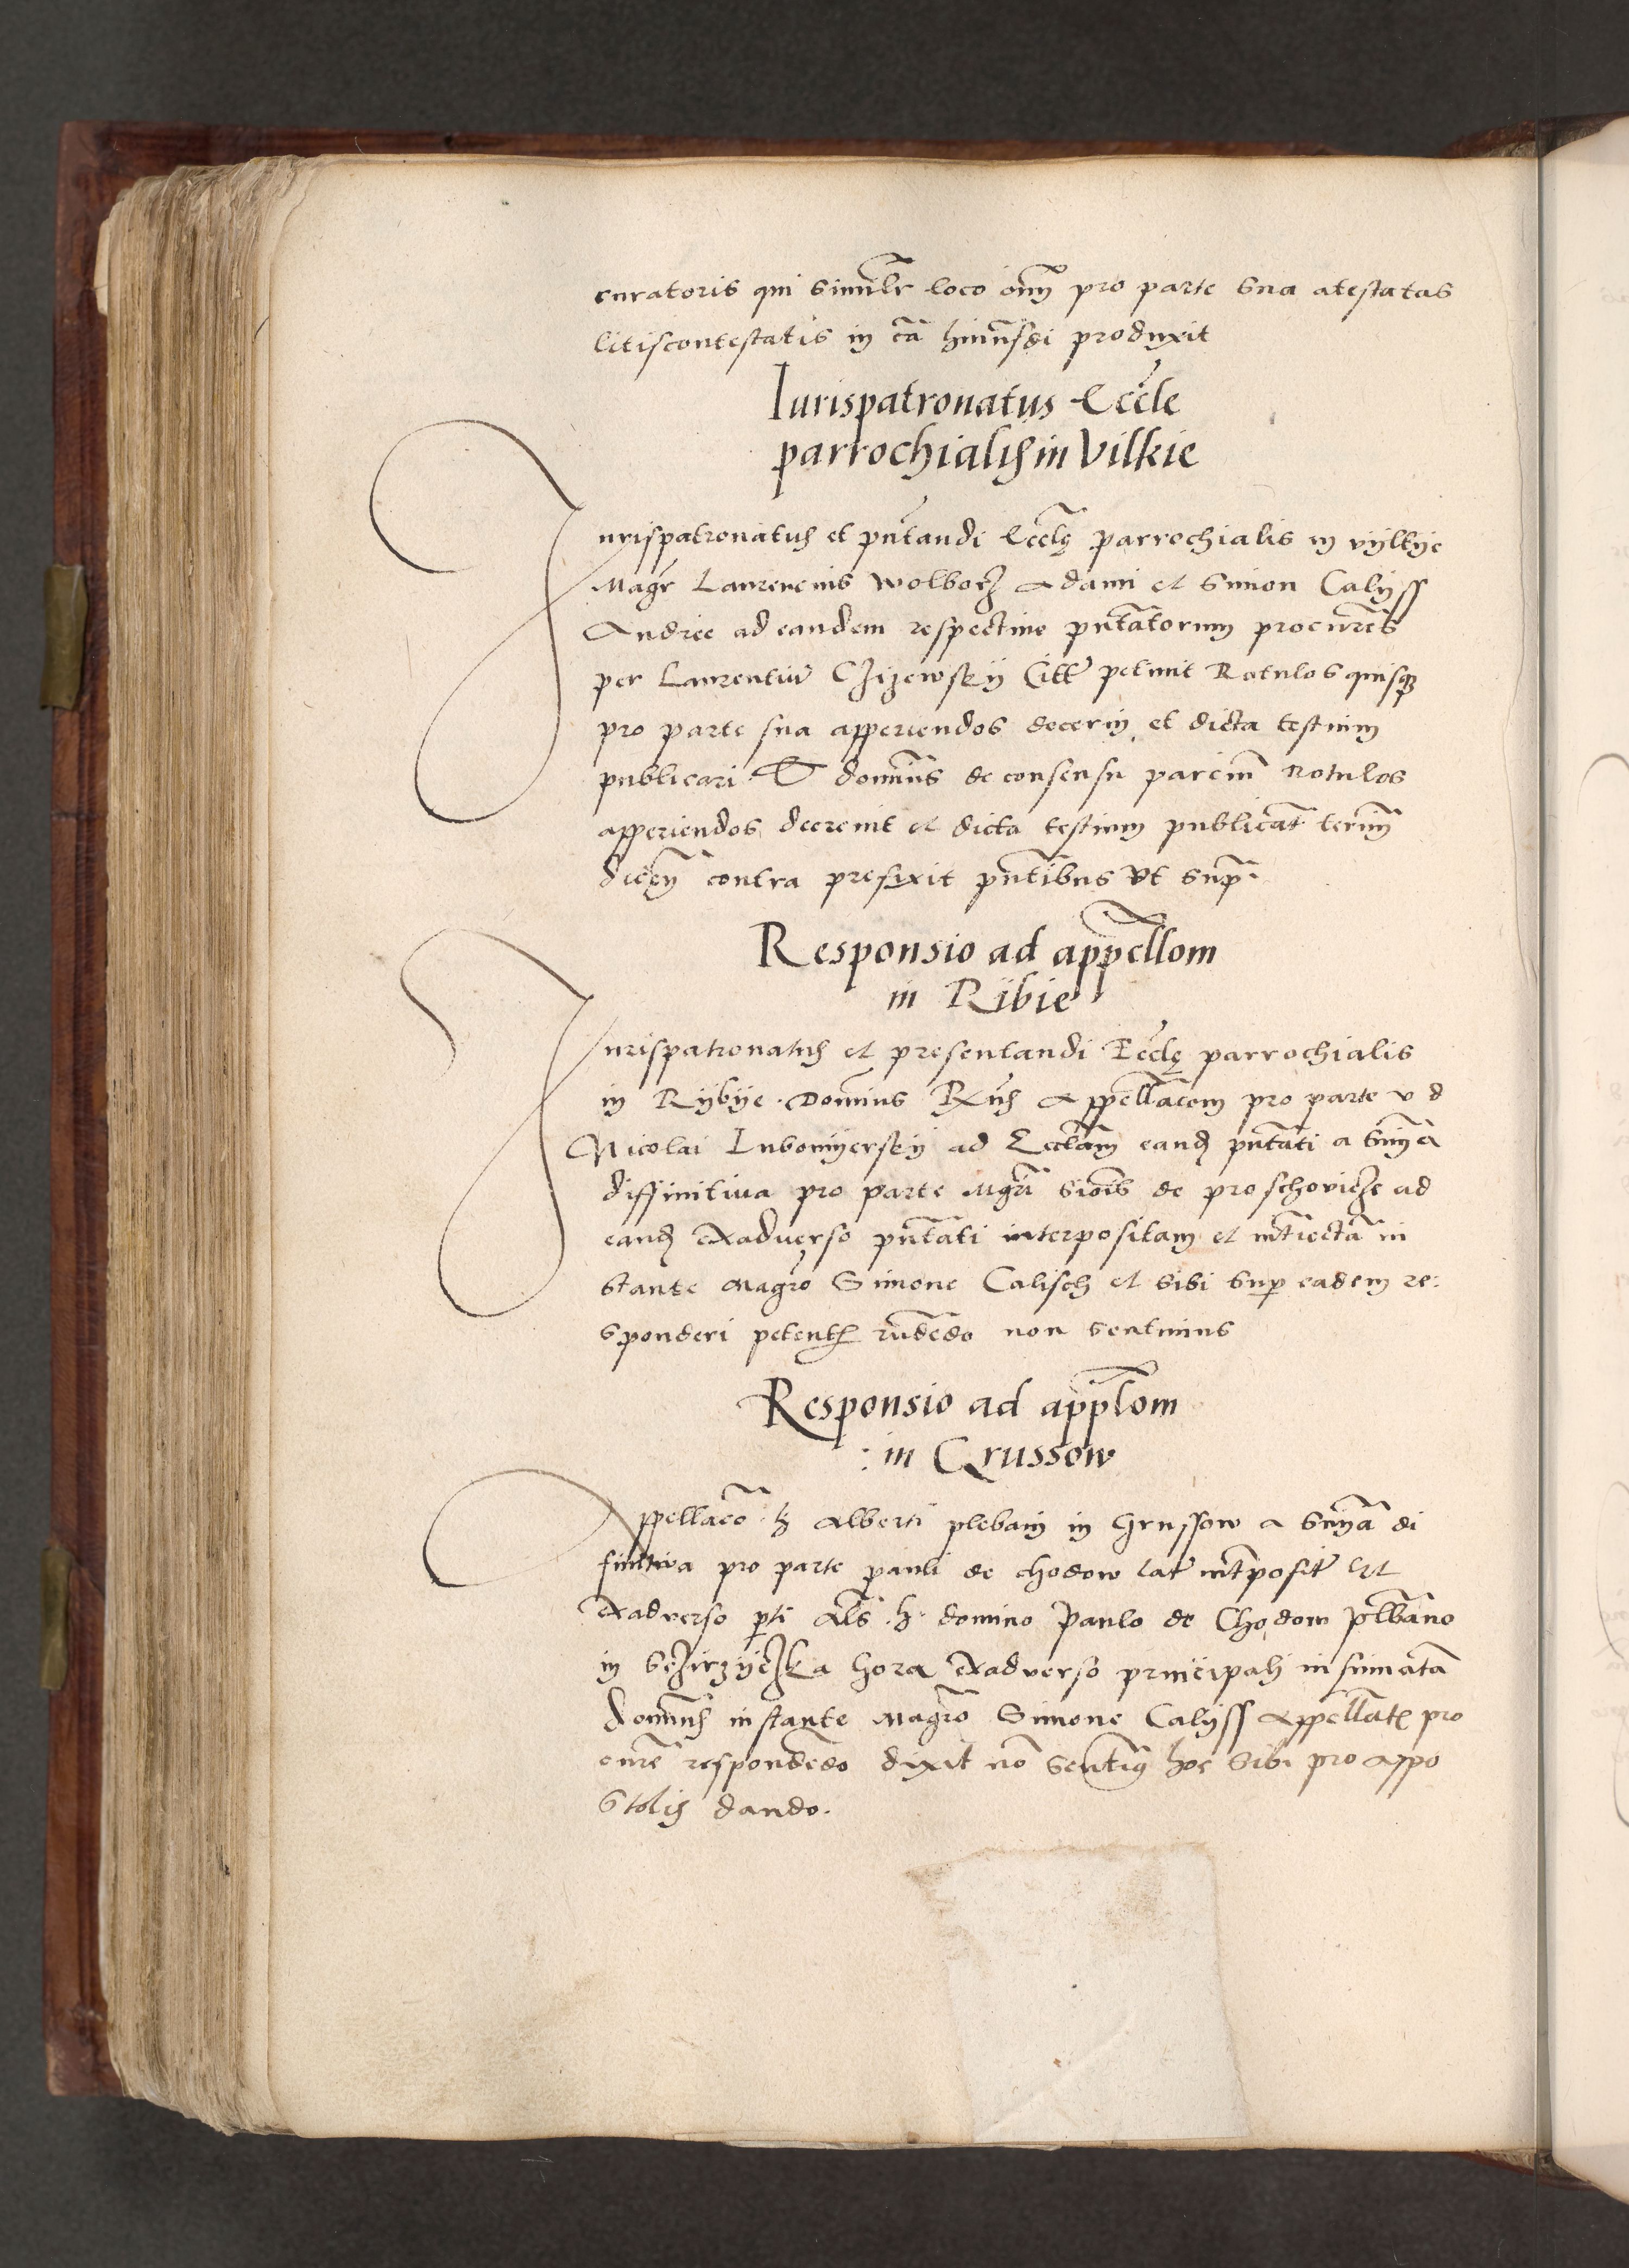 curatoris qui similr loco oim pro parte sua atestatas
litiscontestatis in cã huiusdi produxit
Iurispatronatus Eccle
parrochialis in Vilkie
Iurispatronatus et pñtandi Ecclę parrochialis in vylkye
Magr Laurencius Wolborz Adami et Simon Calyss
Andree ad eandem respectiue pñtatorum procures
per Laurentiũ Czizewsky petiuit Rotulos quisq
pro parte sua apperiendos decerni et dicta testium
publicari. Et dominus de consensu parcium Rotulos
apperiendos decreuit et dicta testium publicat termin
dicen contra prefixit pñtibus vt supr.
Responsio ad appellom
in Ribie
Iurispatronatus et presentandi Ecclę parrochialis
in Rybye. Dominus Appellacem pro parte v d
Nicolai Lubomyersky ad Ecclam eand pñtati a snia
diffinitiua pro parte Mgri Siois de proschovicze ad
eand exaduerso pñtati interpositam et intiecta in
stante Magro Simone Calisch et sibi sup eadem re:
sponderi petente rñdedo non sentimus
Responsio ad applom
: in Grussow
Appellaco h Alberti plebani in Grussow a snia di
finitiua pro parte pauli de chodow lat intposit
exadverso pti als h domino Paulo de Chodow plbano
in hora exadverso principali insinuata
dominus instante Magro Simone Calyss Appellate pro
cure respondedo dixit no sentiq hoc sibi pro appo
stolis dando.